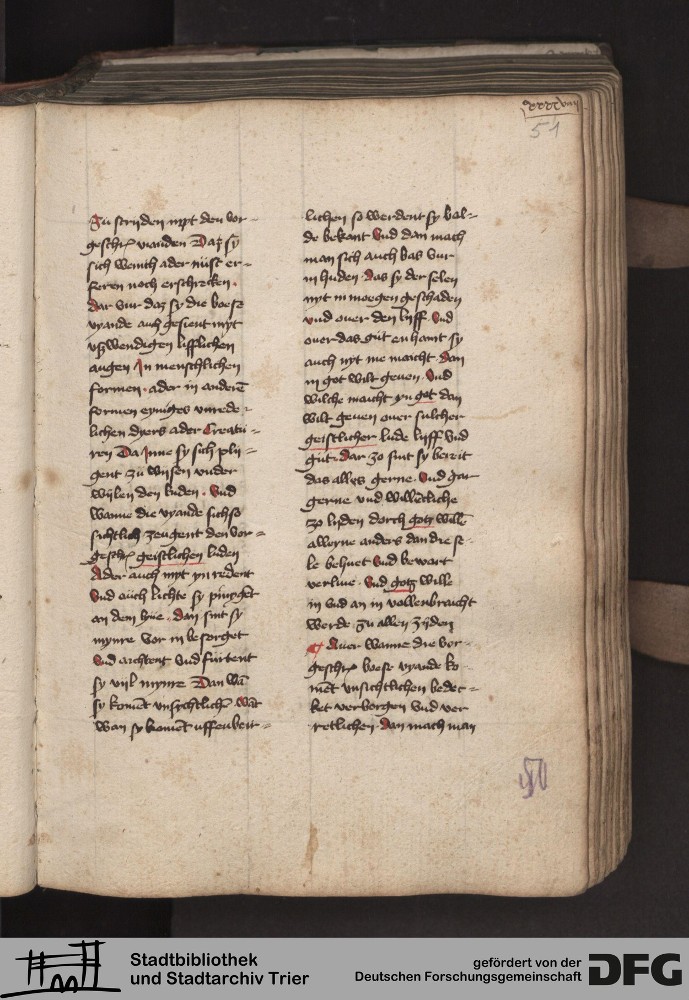 51
Zu strijden myt den vor-
geschr vianden Daz sy
sich
feren noch erschrecken.
dar vur daz sy die boese
vyande auch gesient myt
vßwendigen lifflichen
augen In menschlichen
formen. ader in anderē
formen eyniges vnrede-
lichen dyers ader Creatu-
ren Da Inne sy sich plii-
gent zu wysen vnder
wijlen den luden. Vnd
wanne die vyande sich so
sichtlich zeugent den vor-
geschr geistlichen luden
Ader auch myt yn redent
Vnd auch lichte sy pinyget
an dem lyue. dan sint sy
mynre vor in besorget
Vnd aichtent Vnd furtent
sy viil mynre Dan wā
sy komēt vnsychtlich wāt
Wan sy komēt uffenbeir-
lichen so werdent sy bal-
de bekant Vnd dan mach
man sich auch bas vur
in huden. das sy der selen
nyt in moegen geschaden
vnd ouer den lyff. Vnd
ouer das gut en haint sy
auch nyt me maicht. dan
in got wilt geuen. Vnd
wilche maicht yn got dan
wilt geuen ouer sulcher
geistlicher lude lyff Vnd
gut. dar zo sint sy bereit
das allys gerne. Vnd gar
gerne vnd willēcliche
zo lyden dorch gotz willē
alleyne anders dan die se-
le behuet Vnd bewart
verliue. Vnd gotz wille
in vnd an in vollenbraicht
werde. zu allen zijden
Auer wanne die vor-
geschr boese vyande ko-
mēt vnsichtlichen bedec-
ket verborgen Vnd ver
retlichen. dan mach man
Stadtbibliothek
und Stadtarchiv Trier
gefördert von der
Deutschen Forschungsgemeinschaft
DFG